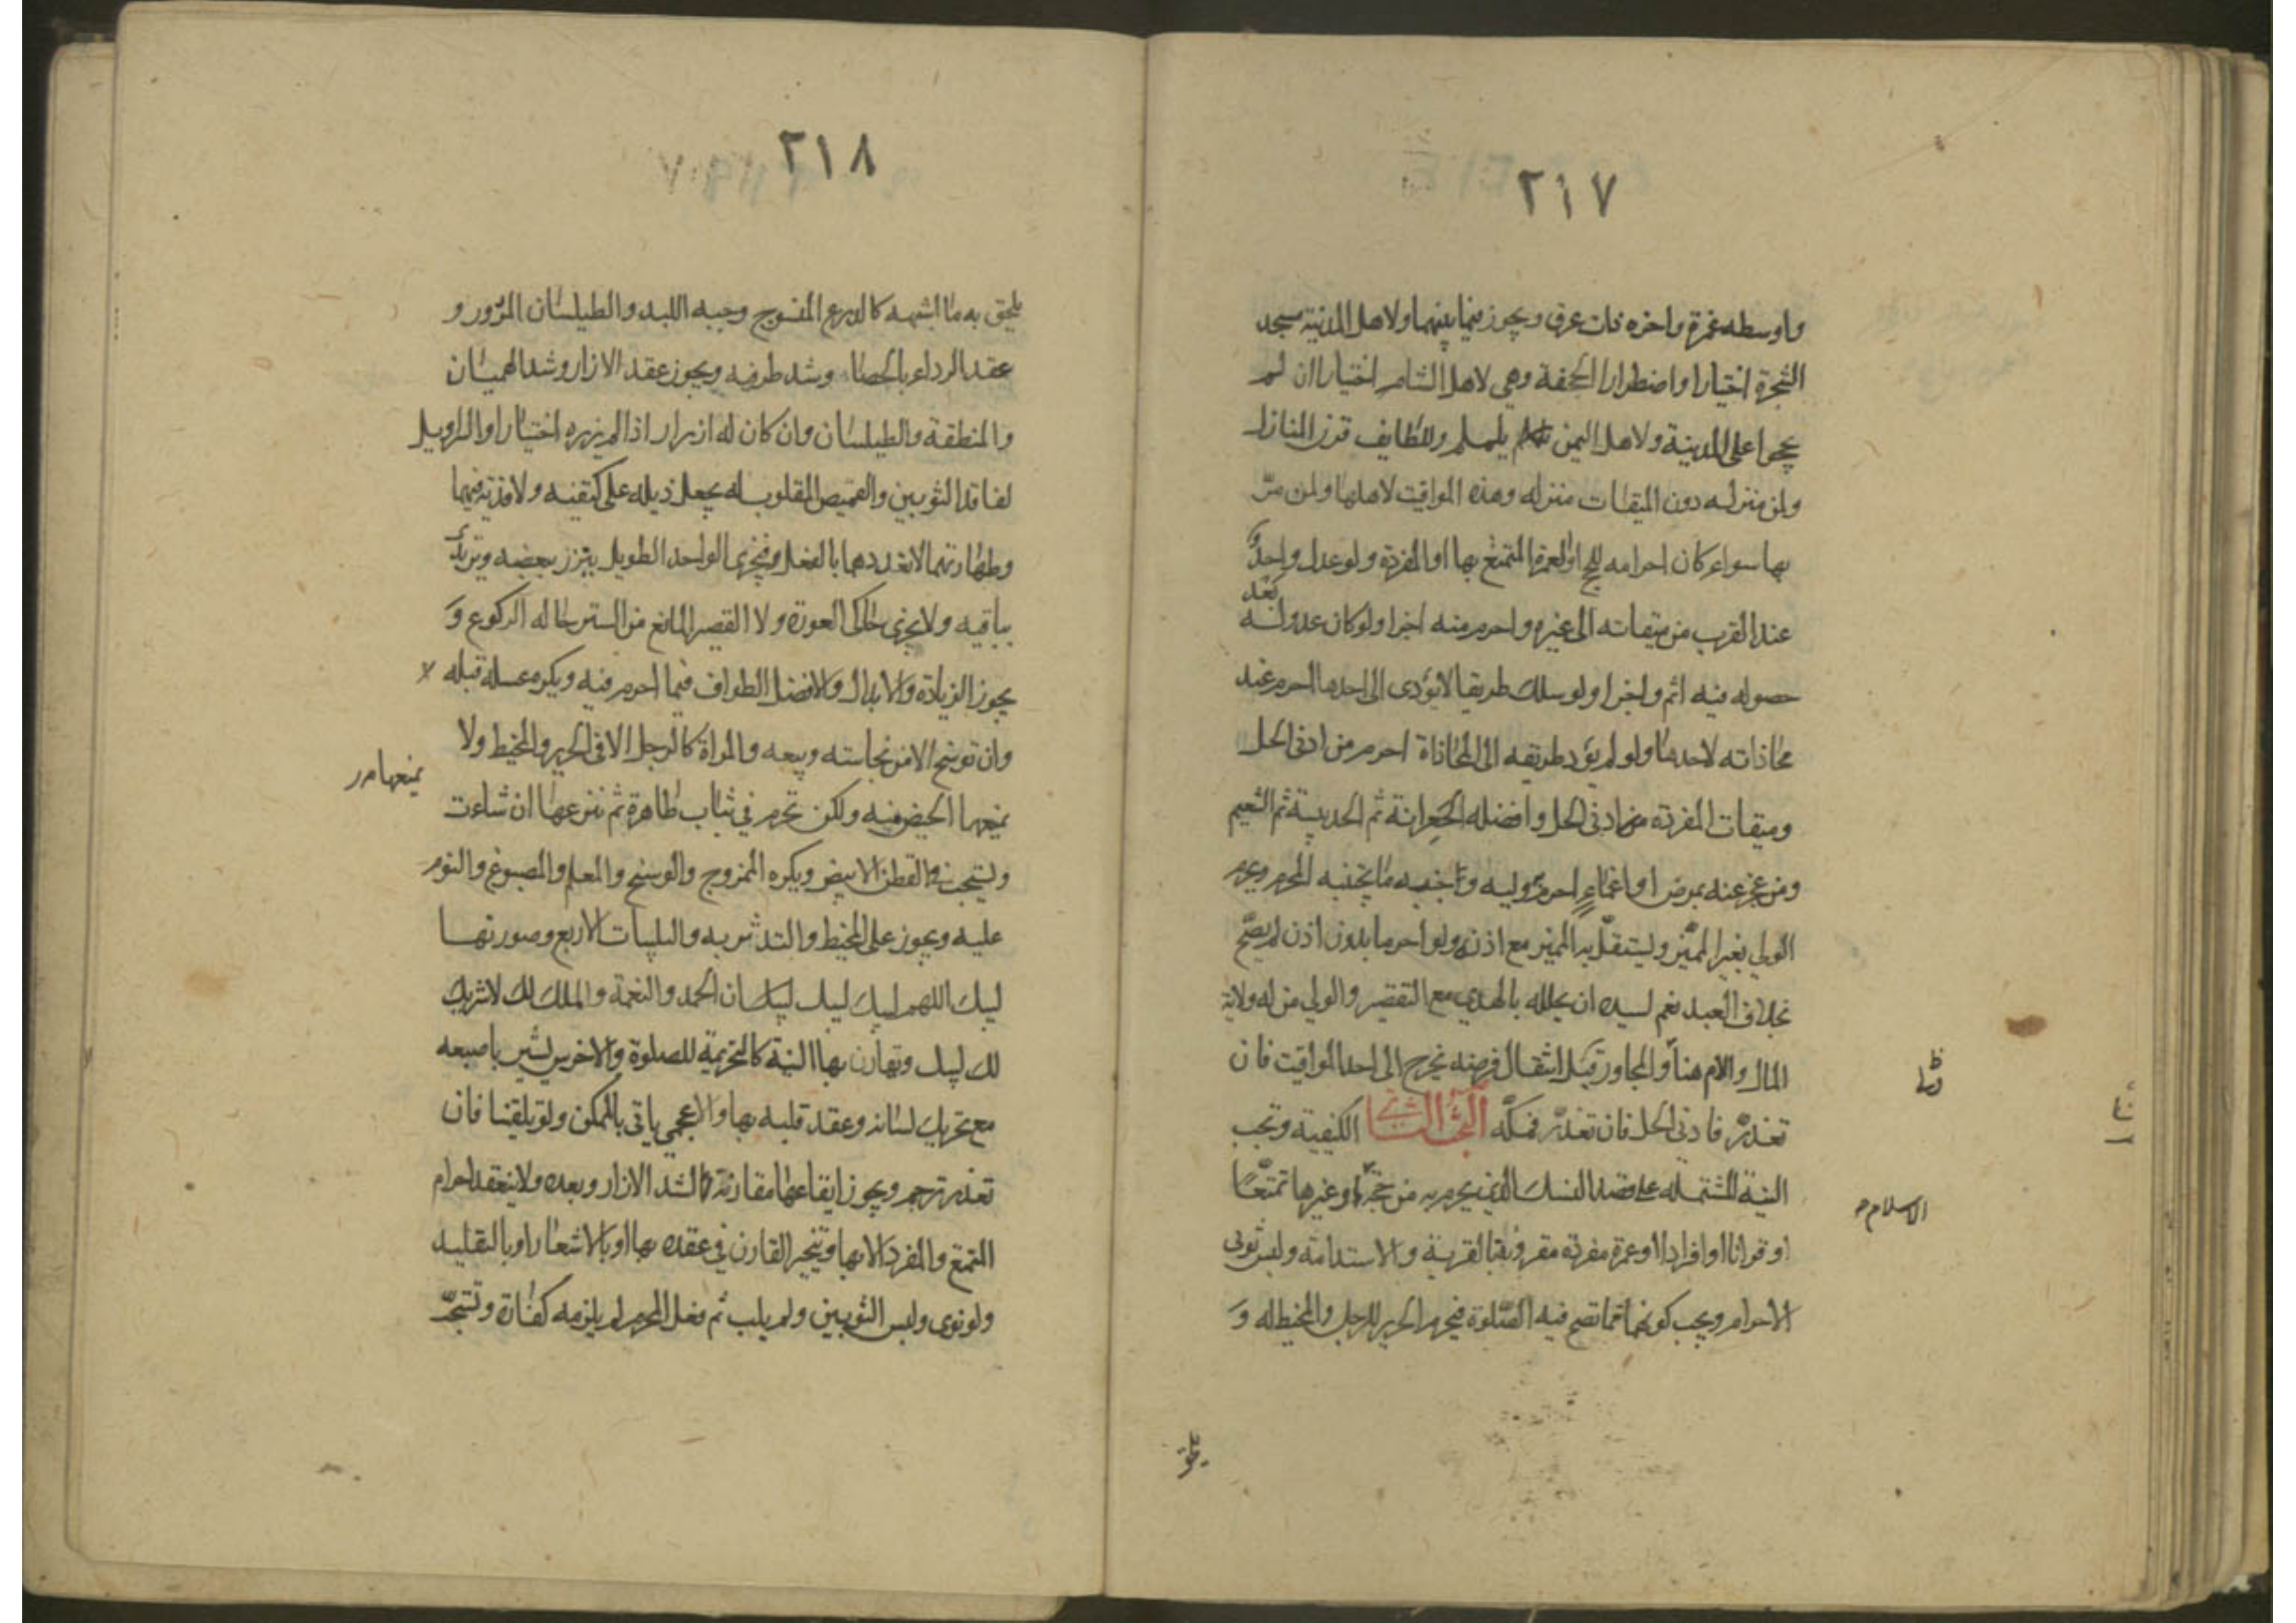 ٢١٧
واوسطه غمرة واخره ذات عرق ويجوز فيما بينهما ولاهل المدنية مسجد
الشجرة اختيارا واضطرارا الجحفة وهي لاهل الشام اختيارا ان لم
يمروا على المدينة ولاهل اليمن يلملم وللطايف قرن المنازل
ولمن منزله دون الميقات منزله وهذه المواقيت لاهلها ولمن مرّ
بها سواء كان احرامه للحج او العمرة المتمتع بها او المفردة ولو عدل واحد
بعد
عند القرب من ميقاته الى غيره واحرم منه اجزا ولو كان عدوله
حصوله فيه اثم واجزا ولو سلك طريقا لا يؤدى الى احدها احرم عند
محاذاته لاحدها ولو لم يؤد طريقه الى المحاذاة احرم من ادنى الحل
وميقات المفردة من ادنى الحل وافضله الجعرانة ثم الحديبية ثم التنعيم
ومن عجز عنه بمرض او اغماء احرم وليه وجنبه ما يجتنبه المحرم ويحرم
الولي بغير المميّز ويستقل به المميز مع اذنه ولو احرما بدون اذن لم يصح
بخلاف العبد نعم لسيده ان يحلله بالهدي مع التقصير والولي من له ولاية
المال والام هنا والمجاور قبل انتقال فرضه يخرج الى احد المواقيت فان
تعذر فادنى الحل فان تعذر فمكّه البحث الثاني الكيفية وتجب
النية المشتمله على قصد النسك الذي يحرم به من حجة او غيرها تمتعا
الاسلام
او قرانا او افرادا او عمرة مفردة مقرونة بالقربة والاستدامة ولبس ثوبى
الاحرام ويجب كونهما مما تصح فيه الصّلوة فيحرم الحرير للرجل والمخيط له و
يلحق
٢١٨
يلحق به ما اشبهه كالدرع المنسوج وجبه اللبد والطيلسان المزرور و
عقد الرداء بالحصا وشد طرفيه ويجوز عقد الازار وشد الهميان
والمنطقة والطيلسان وان كان له ازرار اذا لم يزره اختيارا والسراويل
لفاقد الثوبين والقميص المقلوب له يجعل ذيله على كتفيه ولا فدية فيهما
وطهارتهما لا تعددهما بالفعل فيجزى الواحد الطويل يتزر ببعضه ويرتدى
بباقيه ولا يجزى حاكى العورة ولا القصير المانع من الستر حاله الركوع و
يجوز الزيادة والابدال والافضل الطواف فيما احرم فيه ويكره غسله قبله لا
وان توسخ الا من نجاسته وبيعه والمراة كالرجل الا في الحرير والمخيط ولا
يمنعها
يمنعها الحيض منه ولكن تحرم في ثياب طاهرة ثم تنزعها ان شاءت
ويستحب القطن الابيض ويكره الممزوج والوسخ والمعلم والمصبوغ والنوم
عليه ويجوز على المخيط والتدثر به والتلبيات الاربع وصورتها
لبيك اللهم لبيك لبيك لبيك ان الحمد والنعمة والملك لك لا شريك
لك لبيك وتقارن بها النية كالتحريمة للصلوة والاخرس يشير باصبعه
مع تحريك لسانه وعقد قلبه بها والاعجمي ياتى بالممكن ولو تلقينا فان
تعذر ترجم ويجوز ايقاعها مقارنة لشد الازار وبعده ولا ينعقد احرام
التمتع والمفرد الا بها ويتخير القارن في عقده بها او بالاشعار او بالتقليد
ولو نوى ولبس الثوبين ولم يلب ثم فعل المحرم لم يلزمه كفارة وتستحب